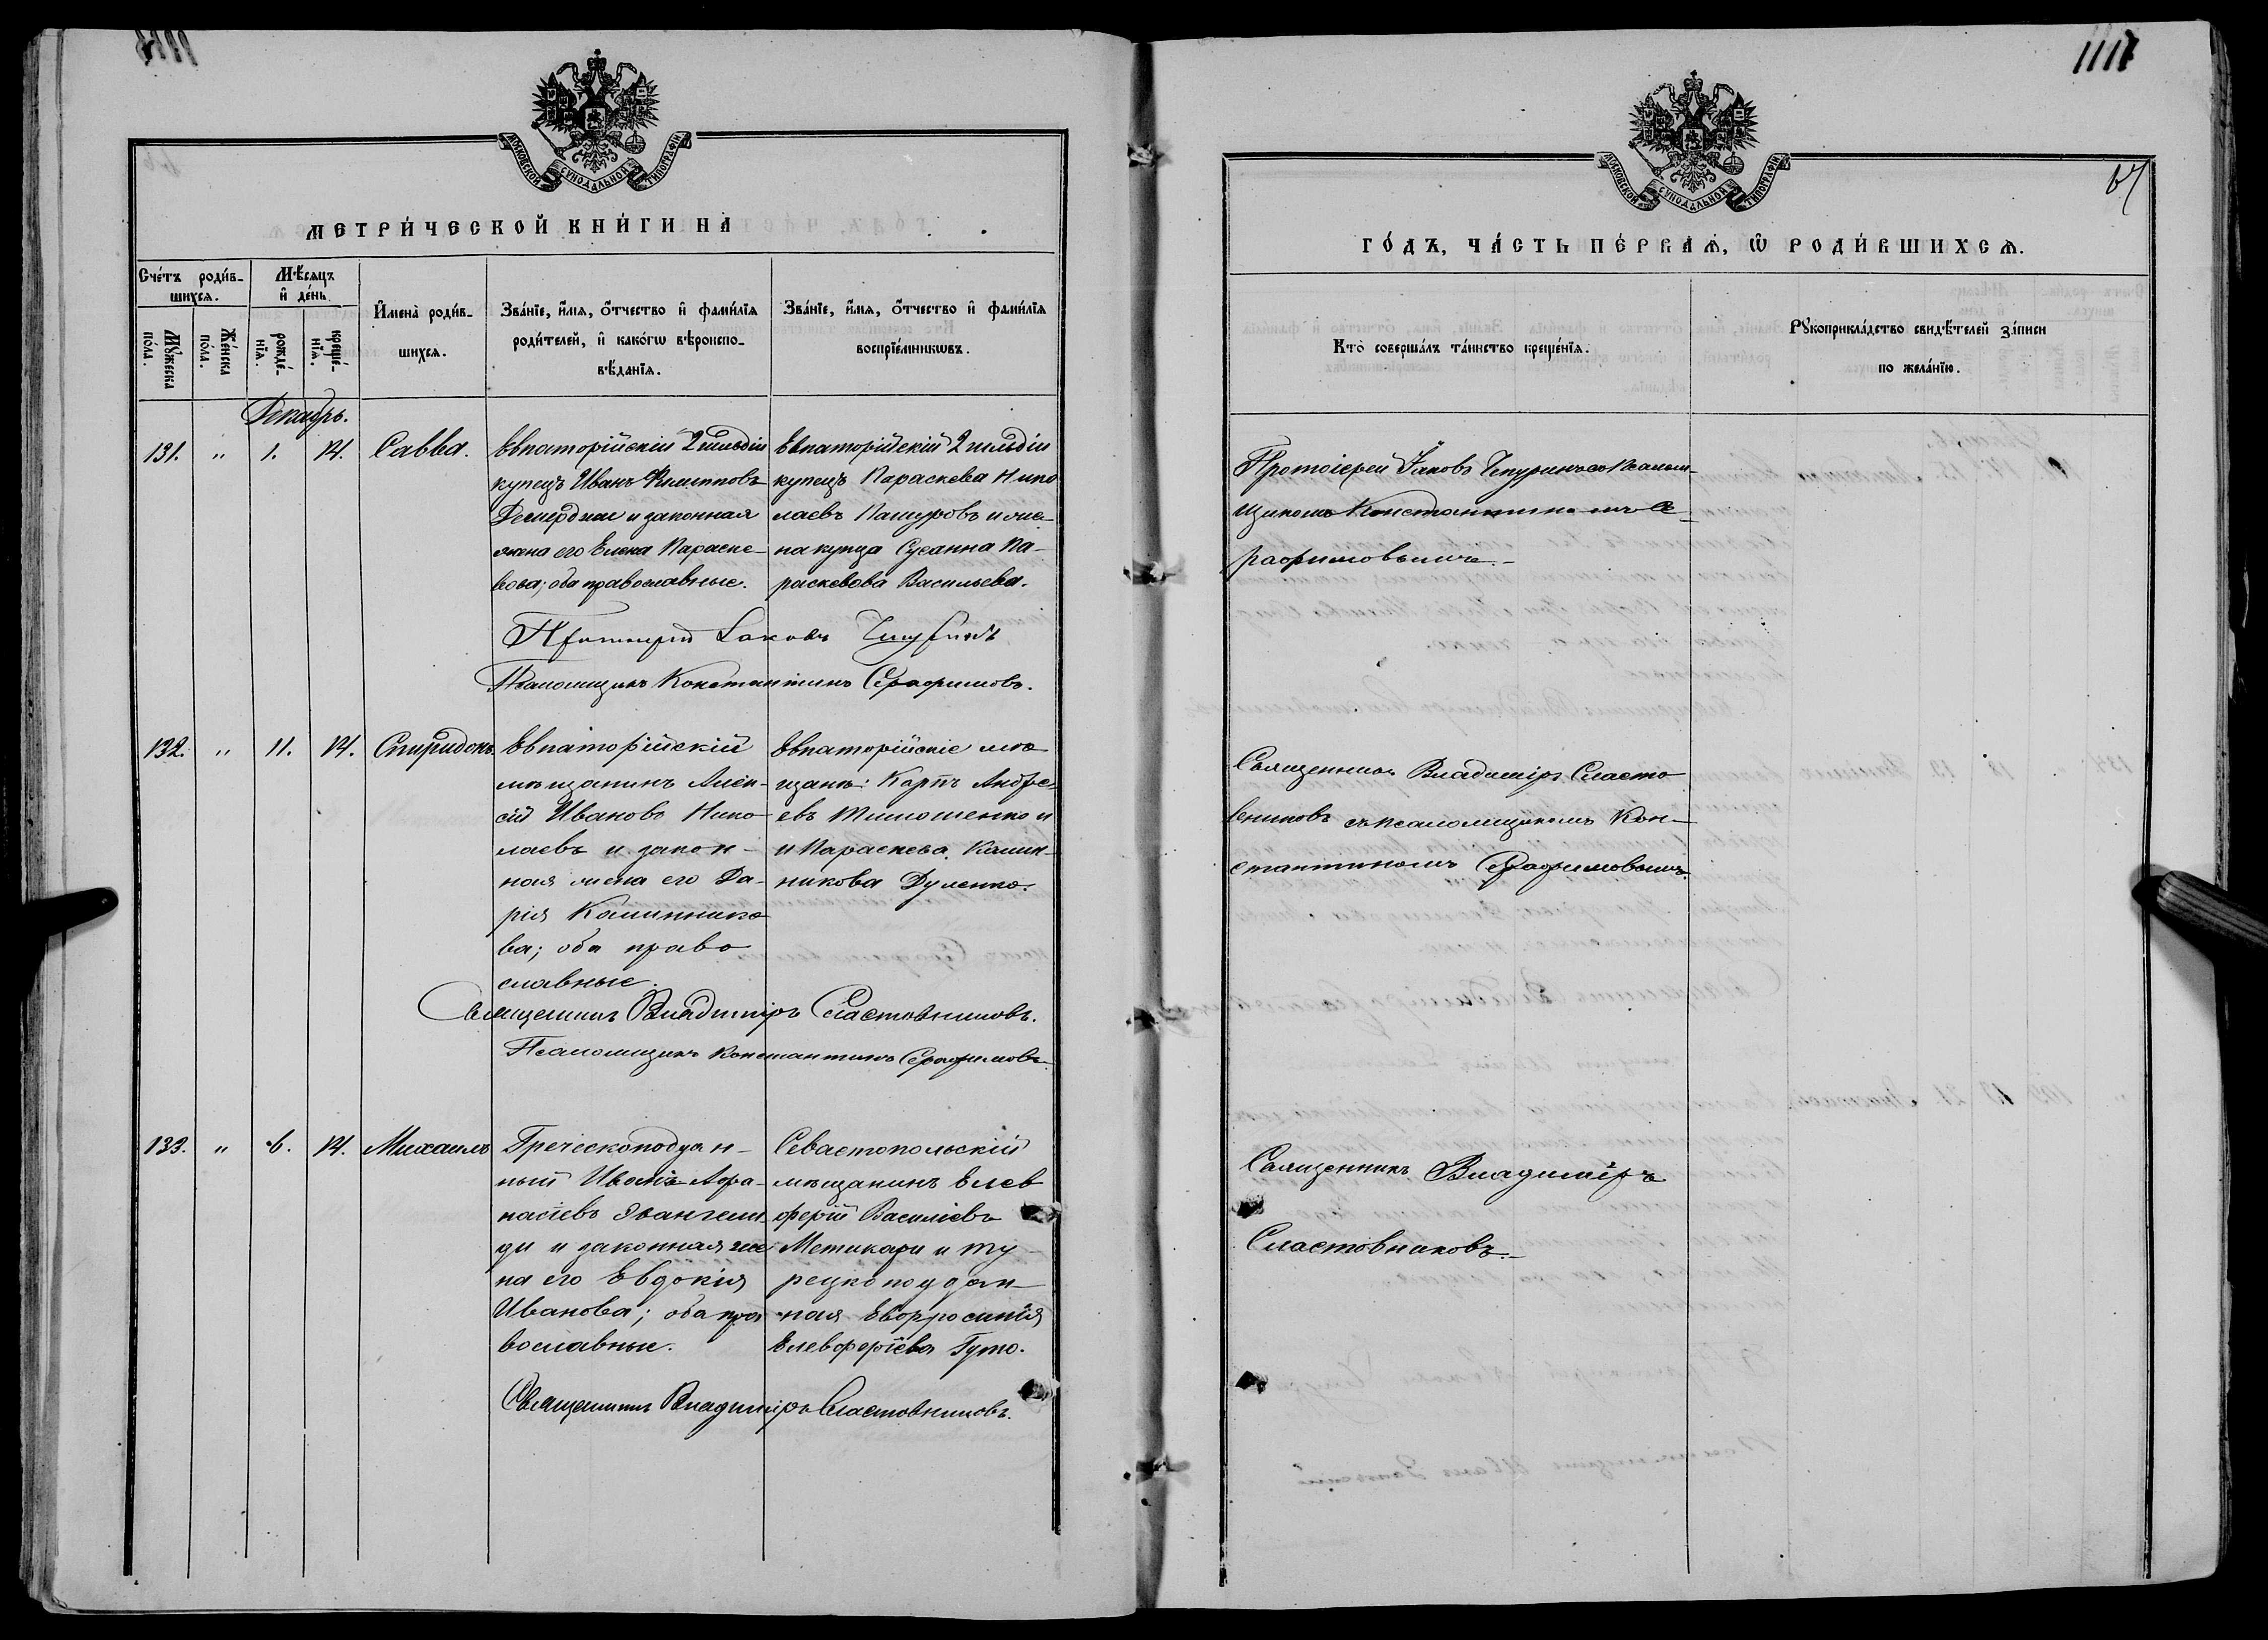 1117
МОСКОВСКОЙ СУНОДАЛЬНОЙ ТИПОГРАФІИ
МЕТРИ́ЧЕСКОЙ КНИ́ГИ НА
Сче́тъ роди́в-
шихсѧ.
Мѣ́сѧцъ
и҆ де́нь.
Мꙋ́жеска по́ла.
Же́нска по́ла.
рожде́-
нїѧ.
креще́-
нїѧ.
И҆мена̀ роди́в-
шихсѧ.
Зва́нїе, и҆́мѧ, ѻ҆́тчество и҆ фами́лїѧ
роди́телей, и҆ како́гѡ вѣроиспо-
вѣ́данїѧ.
Зва́нїе, и҆́мѧ, ѻ҆́тчество и҆ фами́лїѧ
воспрїе́мникѡвъ.
Декабрь.
131. " 1. 14. Савва.
Евпаторійскій 2 гильдіи
купецъ Иванъ Филипповъ
и законная
жена его Елена Параске-
вова; оба православные.
Евпаторійскій 2 гильдіи
купецъ Параскева Нико
лаевъ Пачуровъ и же-
на купца Сусанна Па-
раскевова Васильева.
Протоіерей Іаковъ Чепуринъ
Псаломщикъ Константинъ Серафимовъ.
132. " 11. 14. Спиридонъ.
Евпаторійскій
мѣщанинъ Алек-
сій Ивановъ Нико-
лаевъ и закон-
ная жена его Да-
рія Калиннико
ва; оба право
славные.
Евпаторійскіе мѣ
щане: Карпъ Андре-
евъ Тимошенко и
и Параскева Калин-
никова Дуленко.
Священникъ Владиміръ Сластовниковъ.
Псаломщикъ Константинъ Серафимовъ.
133. " 6. 14. Михаилъ
Греческоподдан-
ный Иванъ Афа-
насіевъ Евангели
ди и законная же
на его Евдокія
Иванова; оба пра
вославные.
Севастопольскій
мѣщанинъ Елев
ферій Василіевъ
Метикари и ту-
рецкоподдан-
ная Евфросинія
Елевферіева Гуто.
Священникъ Владиміръ Сластовниковъ.
МОСКОВСКОЙ СУНОДАЛЬНОЙ ТИПОГРАФІИ
67
ГО́ДЪ, ЧА́СТЬ ПЕ́РВАѦ, Ѡ҆ РОДИ́ВШИХСѦ.
Кто̀ соверша́лъ та́инство креще́нїѧ.
Рꙋкоприкла́дство свидѣ́телей за́писи
по жела́нїю.
Протоіерей Іаковъ Чепуринъ со Псалом-
щикомъ Константиномъ Се-
рафимовымъ.
Священникъ Владиміръ Сласто
вниковъ съ псаломщикомъ Кон-
стантиномъ Серафимовымъ.
Священникъ Владиміръ
Сластовниковъ.